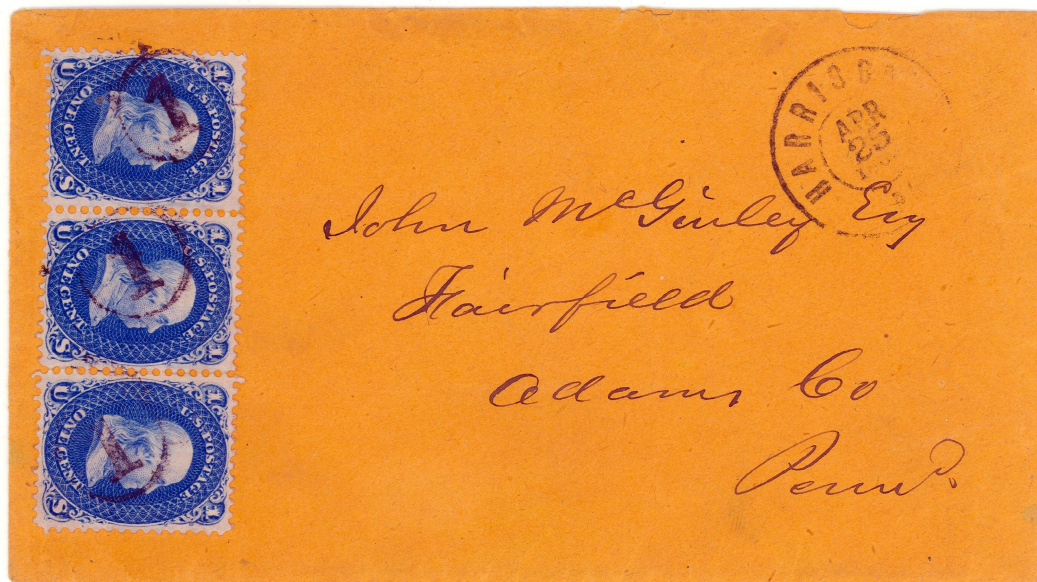 U.S. POSTAGE
ONE CENT
U S
1 1
1
U.S. POSTAGE
ONE CENT
U S
1 1
1
U.S. POSTAGE
ONE CENT
U S
1 1
1
HARRISB
APR
25
John McGinley Esq
Fairfield
Adams Co
Penna.